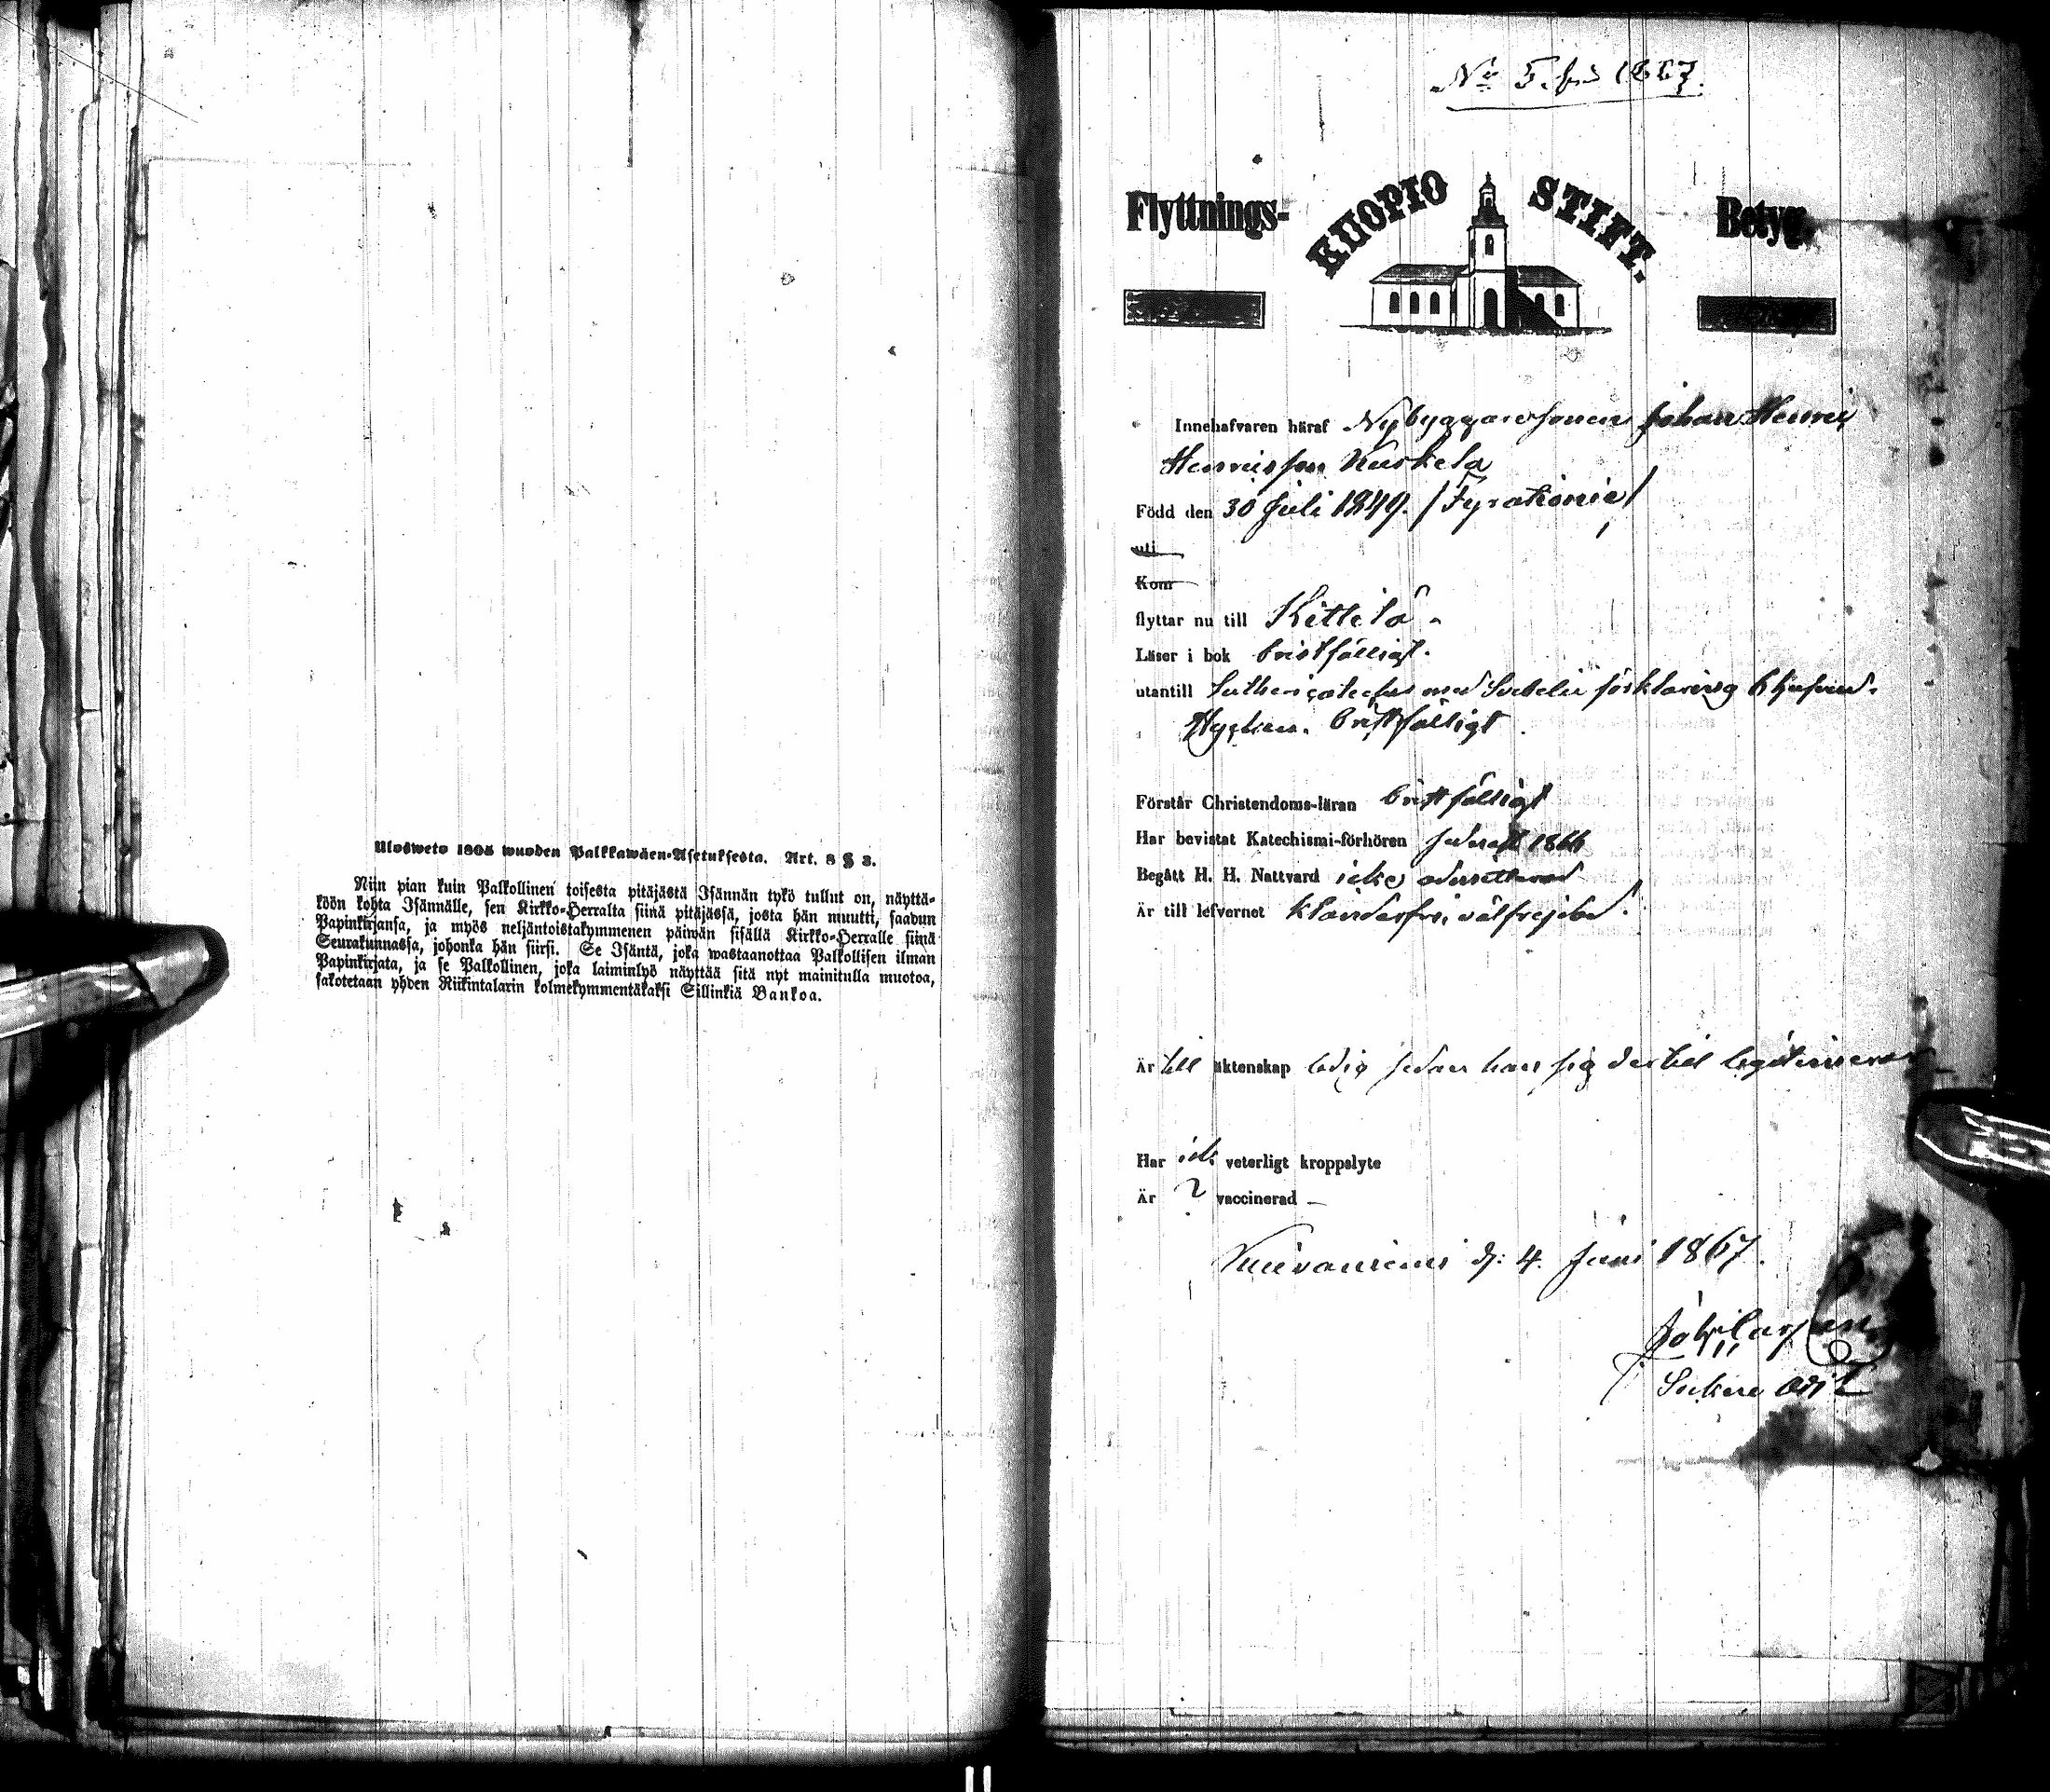 Ulosweto 1805 wuoden Palkkawäen-Asetuksesta. Art. 8 § 3.
Niin pian kuin Palkollinen toisesta pitäjästä Isännän tykö tullut on, näyttä-
köön kohta Isännälle, sen Kirkko-Herralta siinä pitäjässä, josta hän muutti, saadun
Papinkirjansa, ja myös neljäntoistakymmenen päiwän sisällä Kirkko-Herralle siinä
Seurakunnassa, johonka hän siirsi. Se Isäntä, joka wastaanottaa Palkollisen ilman
Papinkirjata, ja se Palkollinen, joka laiminlyö näyttää sitä nyt mainitulla muotoa,
sakotetaan yhden Riikintalarin kolmekymmentäkaksi Sillinkiä Bankoa.
No 5. 1867.
Flyttnings- KUOPIO STIFT. Betyg.
Innehafvaren häraf Nybyggaresonen Johan Henric
Henricsson Kuskela
Född den 30 Juli 1849. /Fyrationie/
uti
Kom
flyttar nu till Kittilä
Läser i bok bristfälligt.
utantill Lutheri med Svebelii förklaring
bristfälligt
Förstår Christendoms-läran bristfälligt
Har bevistat Katechismi-förhören senast 1866
Begått H. H. Nattvard icke admitterad
Är till lefvernet klanderfri, välfrejdad.
Är till äktenskap ledig sedan han sig dertill legitimerar
Har ick veterligt kroppslyte
Är ? vaccinerad
Kuivaniemi d: 4. Juni 1867.